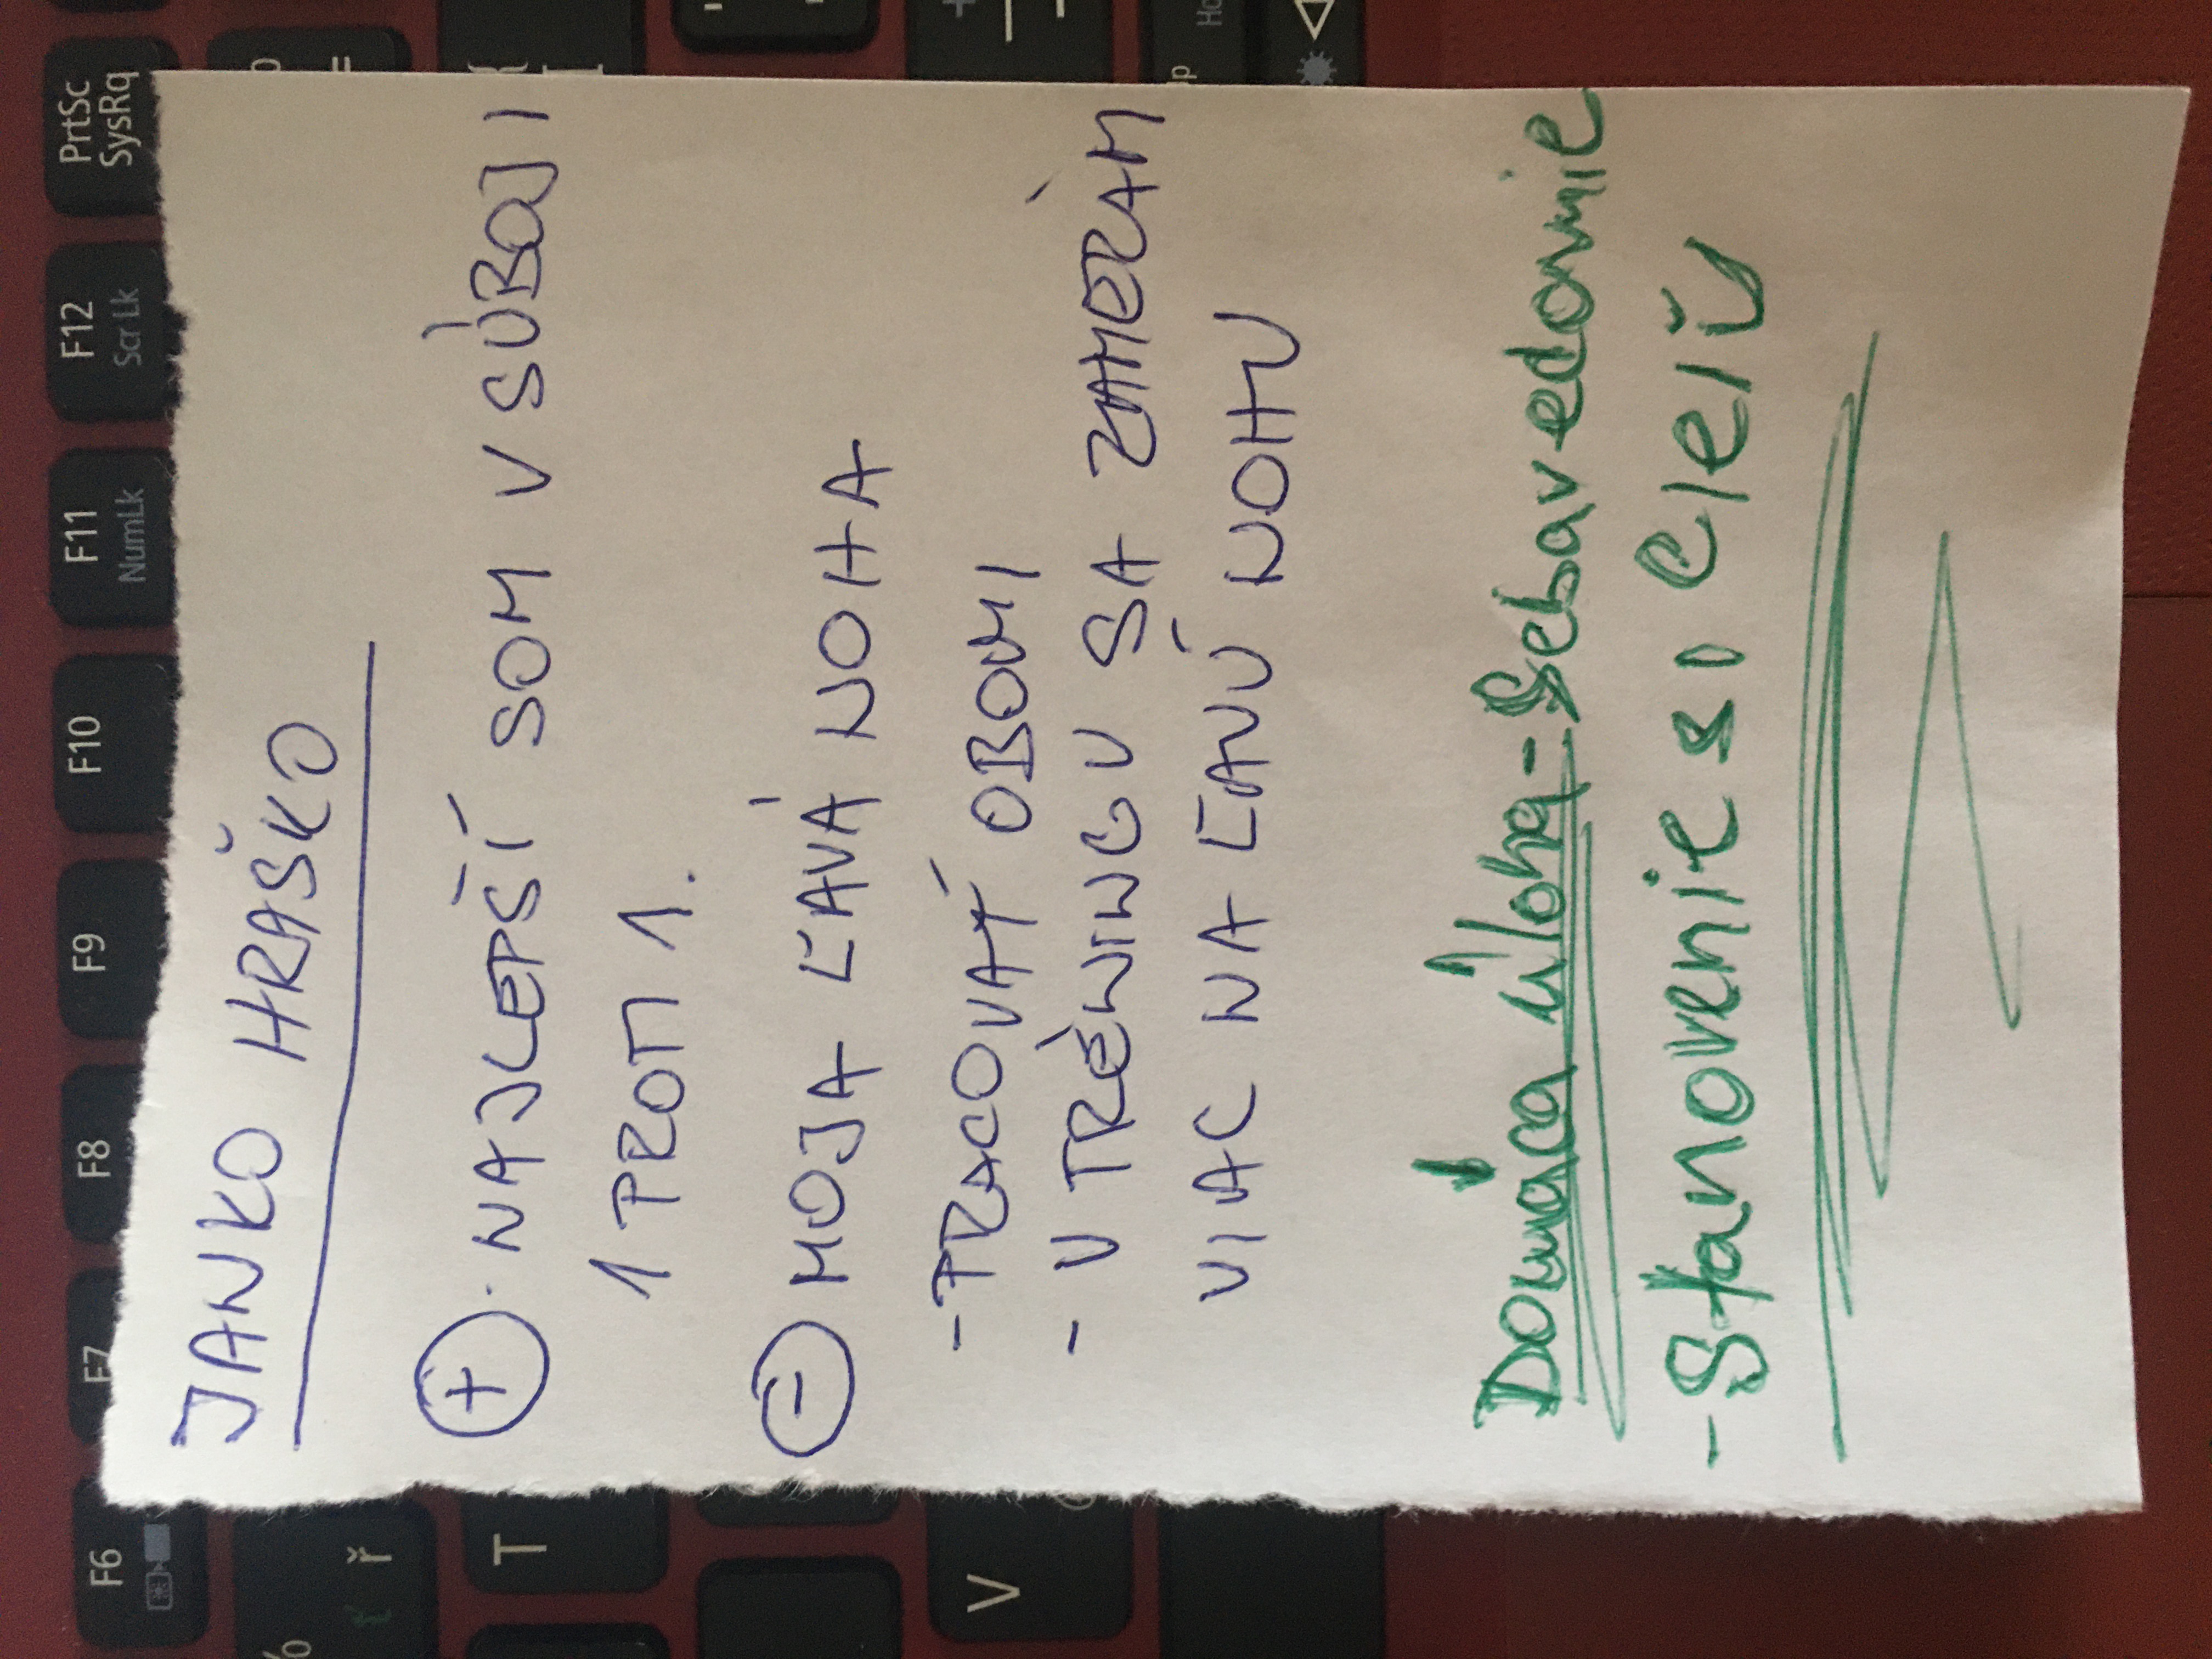 JANKO HRAŠKO
+ · NAJLEPŠÍ SOM V SÚBOJI
1 PROTI 1.
- MOJA ĽAVÁ NOHA
- PRACOVAŤ OBOMI
- V TRÉNINGU SA ZAMERÁM
VIAC NA ĽAVÚ NOHU
Domáca úloha - Sebavedomie
- Stanovenie si cieľů
PrtSc
SysRq
F12
Scr Lk
F11
NumLk
F10
F9
F8
F7
F6
ř
T
V